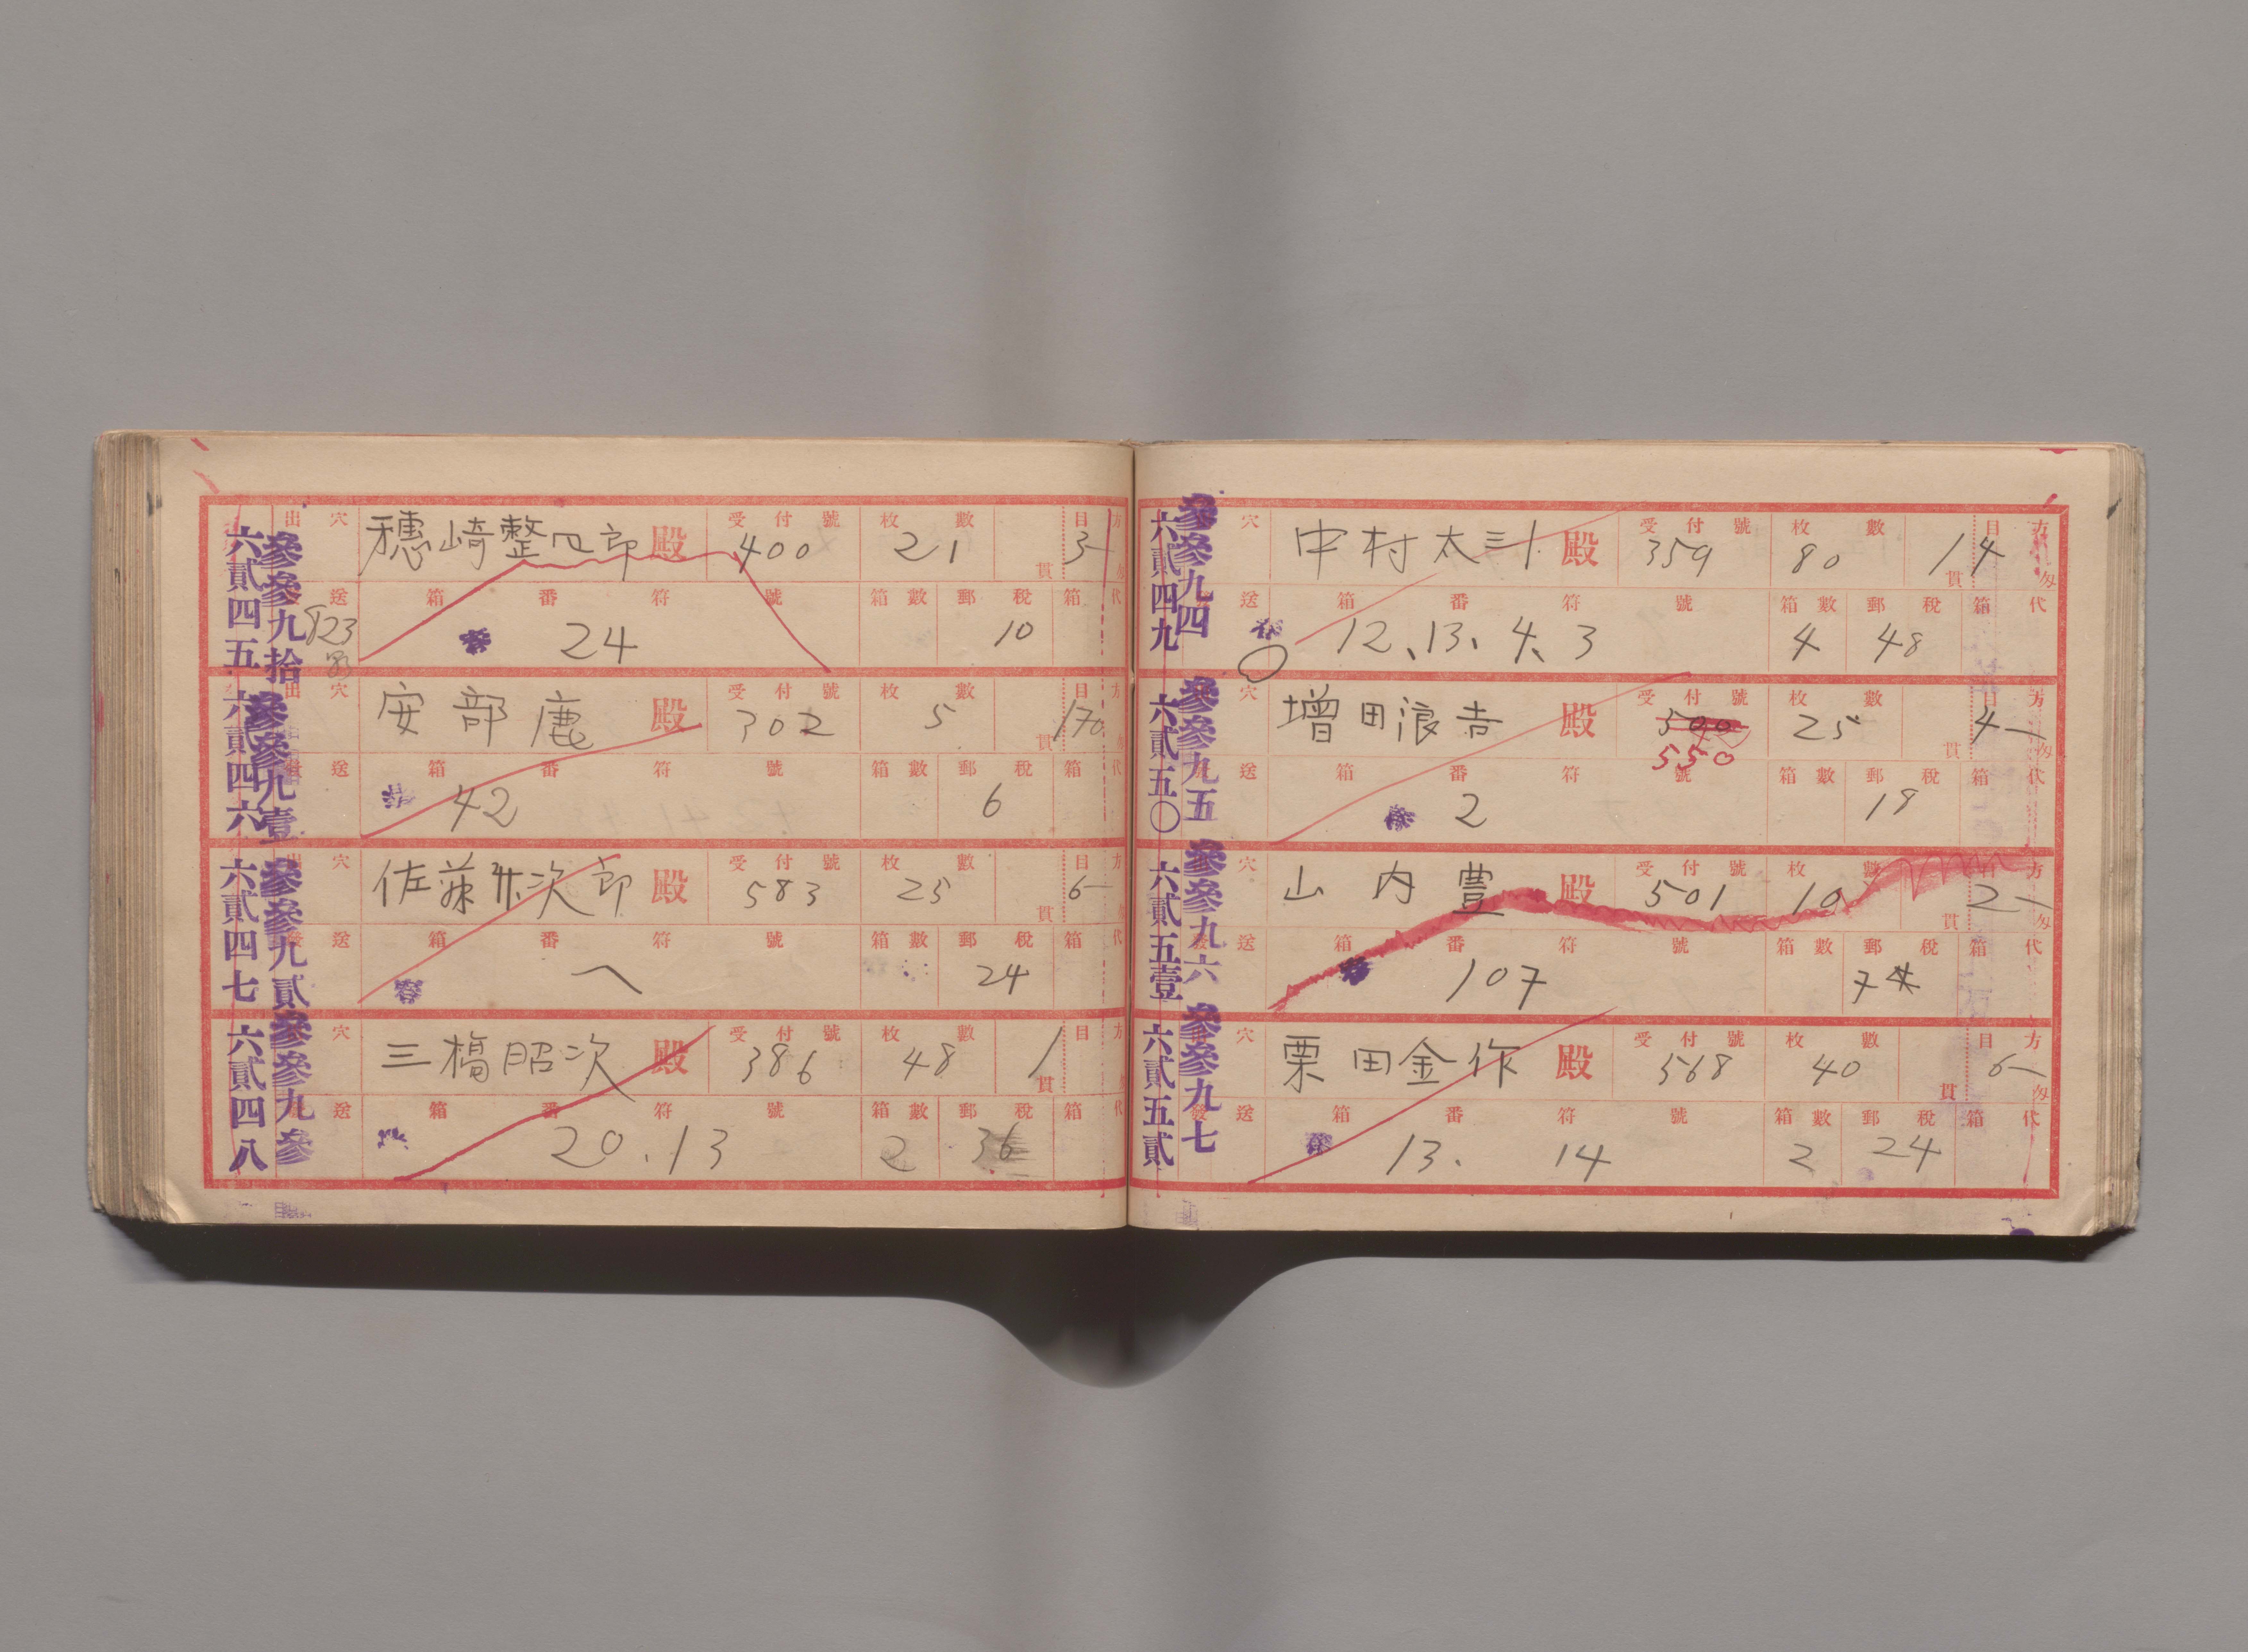 六貳四五
參參九拾
出穴 穗崎整四郎 殿 受付號 400 枚數 21 貫 3- 目方
發送 箱番符號 24 箱數 郵稅 10 箱代
823
六貳四六
參參九壹
出穴 安部鹿 殿 受付號 302 枚數 5 貫 170 目方
發送 箱番符號 42 箱數 郵稅 6 箱代
六貳四七
參參九貳
出穴 佐藤弁次郎 殿 受付號 583 枚數 25 貫 6- 目方
發送 箱番符號 へ 箱數 郵稅 24 箱代
六貳四八
參參九參
穴 三橋昭次 殿 受付號 386 枚數 48 1貫 目方
發送 箱番符號 20.13 箱數 2 郵稅 36 箱代
六貳四九
參參九四
穴 中村太三 殿 受付號 359 枚數 80 1貫 4- 目方 匁
送 箱番符號 12、13、4、3 箱數 4 郵稅 48 箱代
六貳五〇
參參九五
穴 增田浪吉 殿 受付號 500 550 枚數 25 貫 4- 目方 匁
送 箱番符號 2 箱數 郵稅 19 箱代
六貳五壹
參參九六
穴 山内豊 殿 受付號 501 枚數 10 貫 2- 目方 匁
發送 箱番符號 107 箱數 郵稅 7 箱代
六貳五貳
參參九七
穴 栗田金作 殿 受付號 568 枚數 40 貫 6- 目方 匁
發送 箱番符號 13. 14 箱數 2 郵稅 24 箱代